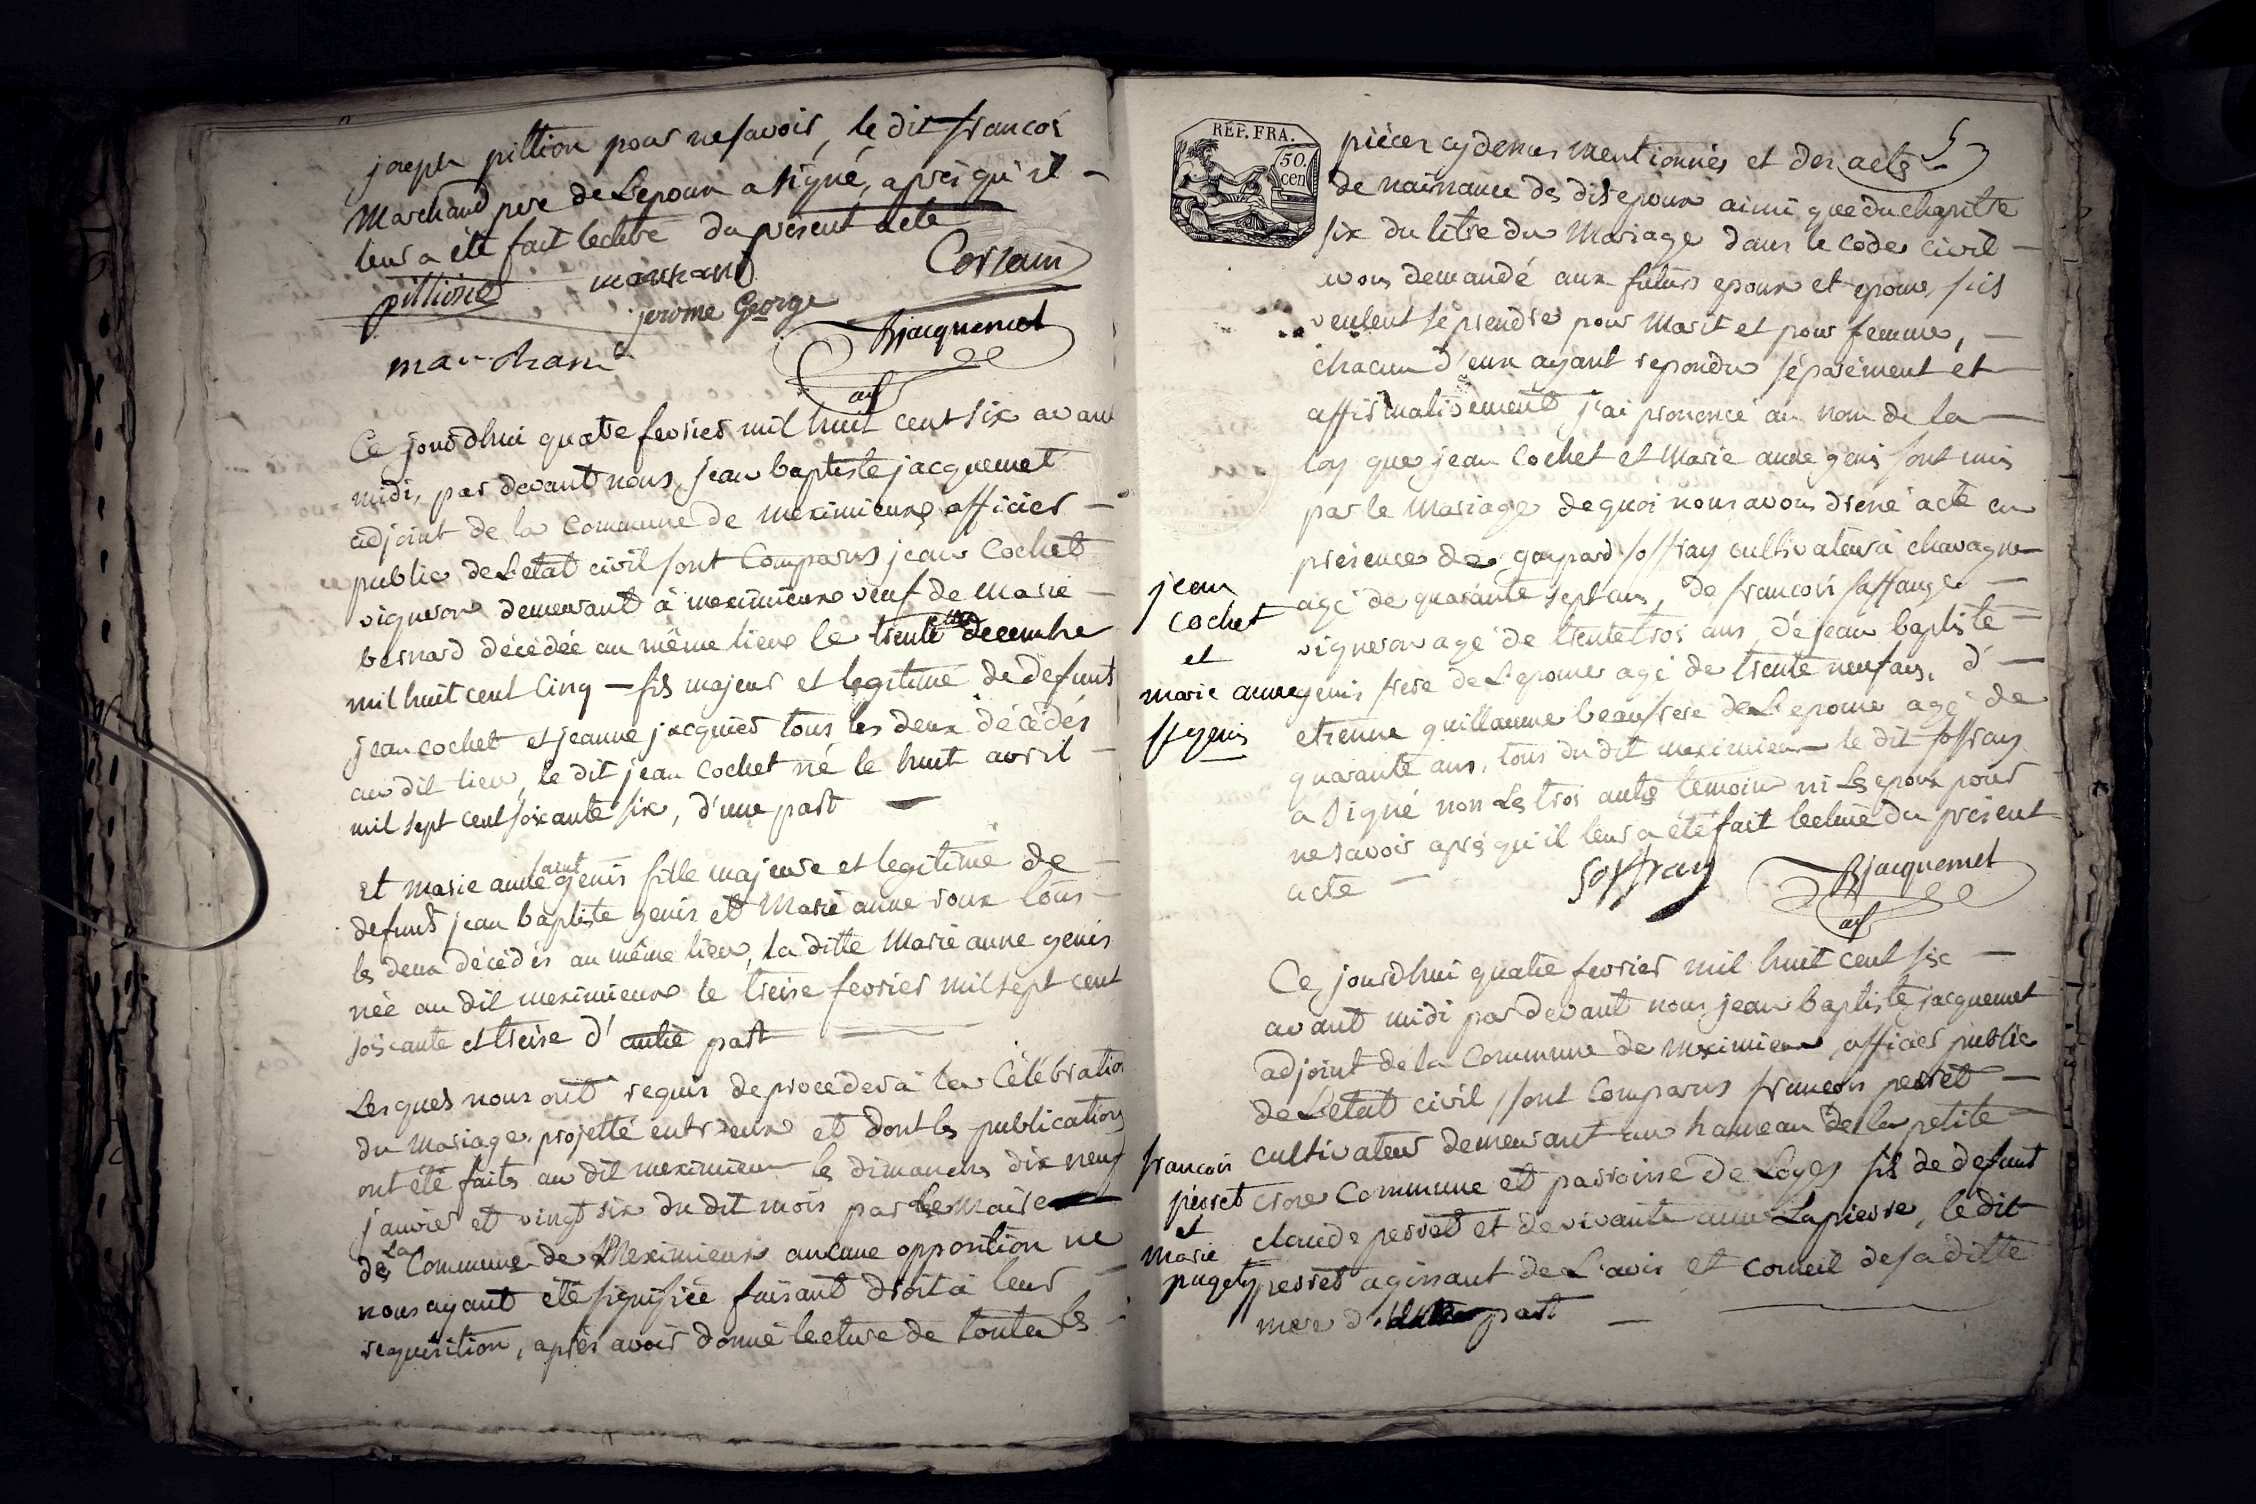 joseph pittion pour ne savoir, le dit francois
Marchand pere de L'epoux a signé, après qu'il
leur a été fait lecture du present acte
pittion marchand Corsain
jerome George
marchand Bjacquemet
adj
Ce jourdhui quatre fevrier mil huit cent six avant
midi, par devant nous jean baptiste jacquemet
adjoint de la Commune de meximieux officier
public de L'etat civil sont Comparus jean Cochet
vigneron demeurant à meximieux veuf de Marie
bernard décédée au même lieu le trente decembre
mil huit cent Cinq - fils majeur et legitime de defunts
jean cochet et jeanne jacquier tous les deux décédés
au dit lieu, le dit jean Cochet né le huit avril
mil sept cent soixante six, d'une part
Et Marie anne saint genis fille majeure et legitime de
defunts jean baptiste genis et Marie anne roux tous
les deux décédés au même lieu, la ditte Marie anne genis
née au dit meximieux le treize fevrier mil sept cent
soixante et treise d'autre part
Lesquels nous ont requis de procéder à la Célébration
du Mariage projetté entr'eux et dont les publications
ont été faites au dit meximieux les dimanches dix neuf
janvier et vingt six du dit mois par le Maire
de La Commune de Meximieux aucune opposition ne
nous ayant été signifiée faisant droit à leur
requisition, après avoir donné lecture de toutes les
RÉP. FRA.
50.
cen
5
pièces cy dessus mentionnées et des actes
de naissance des dits epoux ainsi que du chapitre
six du titre du Mariage dans le code civil
avons demandé aux futurs epoux et epouse s'ils
veulent se prendre pour Marit et pour femme,
chacun d'eux ayant repondu séparément et
affirmativement j'ai prononcé au nom de la
loy que jean Cochet et Marie anne genis sont unis
par le Mariage de quoi nous avons dressé acte en
présence de gaspard soffray cultivateur à chavagne
agé de quarante sept ans, de francois
vigneron agé de trente trois ans, de jean baptiste
genis frere de L'epouse agé de trente neuf ans, d'
etienne guillaume beaufrere de L'epouse agé de
quarante ans, tous du dit meximieux le dit soffray
a signé non les trois autres temoins ni Les epoux pour
ne savoir après qu'il leur a été fait lecture du présent
acte
jean
cochet
et
marie anne
st genis
soffray Bjacquemet
adj
Ce jourdhui quatre fevrier mil huit cent six
avant midi par devant nous jean baptiste jacquemet
adjoint de la Commune de Meximieux officier public
de L'etat civil, sont Comparus francois perret
cultivateur demeurant au hameau de la petite
crose Commune et parroisse de Loyes fils de defunt
claude perret et de vivante anne Lapierre, le dit
perret agissant de L'avis et conseil de sa ditte
mere d'une part
francois
perret
et
marie
puget